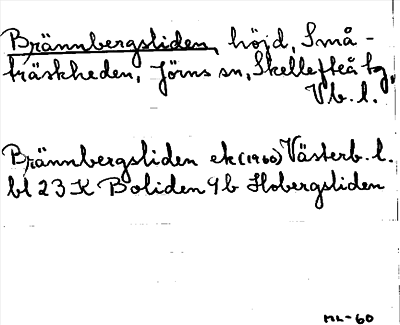 Brännbergsliden, höjd, Små-
träskheden, Jörns sn, Skellefteå tg,
Vb. l.
Brännbergsliden ek (1960) Västerb. l.
bl 23 K Boliden 9b Hobergsliden
ML-60